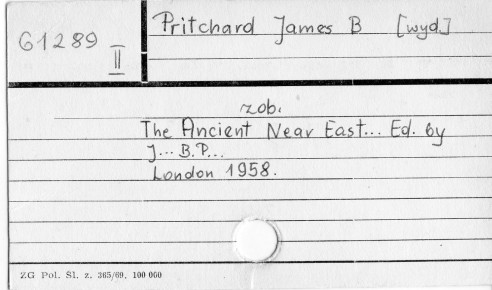 Pritchard James B [wyd.]
61289 II
zob.
The Ancient Near East... Ed. by
J... B.P...
London 1958.
ZG Pol. Sl. z. 365/69, 100 000